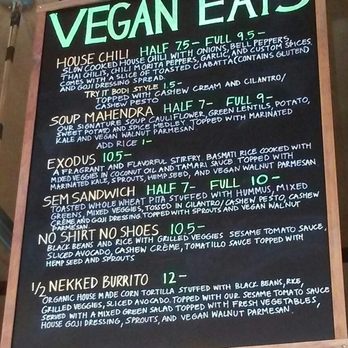 VEGAN EATS
HOUSE CHILI HALF 7.5- FULL 9.5-
SLOW COOKED HOUSE CHILI WITH ONIONS, BELL PEPPERS,
THAI CHILI'S, CHILI MORITA PEPPERS, GARLIC, AND CUSTOM SPICES.
COMES WITH A SLICE OF TOASTED CIABATTA (CONTAINS GLUTEN)
AND GOJI DRESSING SPREAD.
TRY IT BODI STYLE 1.5-
TOPPED WITH CASHEW CREAM AND CILANTRO/
CASHEW PESTO
SOUP MAHENDRA HALF 7- FULL 9-
OUR SIGNATURE SOUP CAULIFLOWER, GREEN LENTILS, POTATO,
SWEET POTATO AND SPICE MEDLEY. TOPPED WITH MARINATED
KALE AND VEGAN WALNUT PARMESAN
ADD RICE 1-
EXODUS 10.5-
A FRAGRANT AND FLAVORFUL STIRFRY. BASMATI RICE COOKED WITH
MIXED VEGGIES IN COCONUT OIL AND TAMARI SAUCE TOPPED WITH
MARINATED KALE, SPROUTS, HEMP SEED, AND VEGAN WALNUT PARMESAN
SEM SANDWICH HALF 7- FULL 10-
TOASTED WHOLE WHEAT PITA STUFFED WITH HUMMUS, MIXED
GREENS, MIXED VEGGIES, TOSSED IN CILANTRO/CASHEW PESTO, CASHEW
CRÈME AND GOJI DRESSING. TOPPED WITH SPROUTS AND VEGAN WALNUT
PARMESAN
NO SHIRT NO SHOES 10.5-
BLACK BEANS AND RICE WITH GRILLED VEGGIES SESAME TOMATO SAUCE,
SLICED AVOCADO, CASHEW CRÈME, TOMATILLO SAUCE TOPPED WITH
HEMP SEED AND SPROUTS
1/2 NEKKED BURRITO 12-
ORGANIC HOUSE MADE CORN TORTILLA STUFFED WITH BLACK BEANS, RICE,
GRILLED VEGGIES, SLICED AVOCADO. TOPPED WITH OUR SESAME TOMATO SAUCE
SERVED WITH A MIXED GREEN SALAD TOPPED WITH FRESH VEGETABLES,
HOUSE GOJI DRESSING, SPROUTS, AND VEGAN WALNUT PARMESAN.